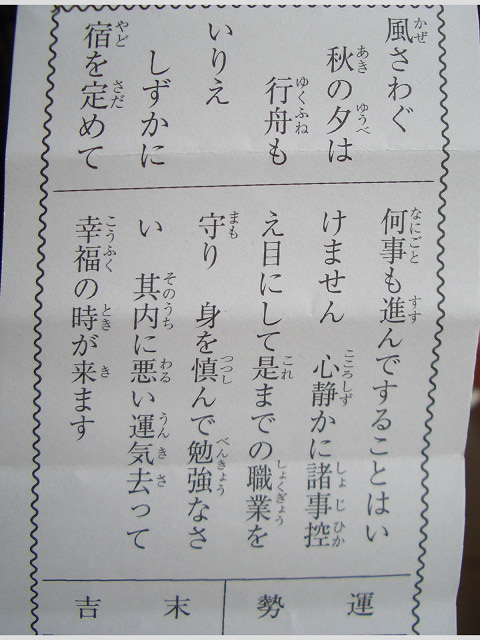 風さわぐ
秋の夕は
行舟も
いりえ
しずかに
宿を定めて
何事も進んですることはい
けません　心静かに諸事控
え目にして是までの職業を
守り　身を慎んで勉強なさ
い　其内に悪い運気去って
幸福の時が来ます
運勢
末吉